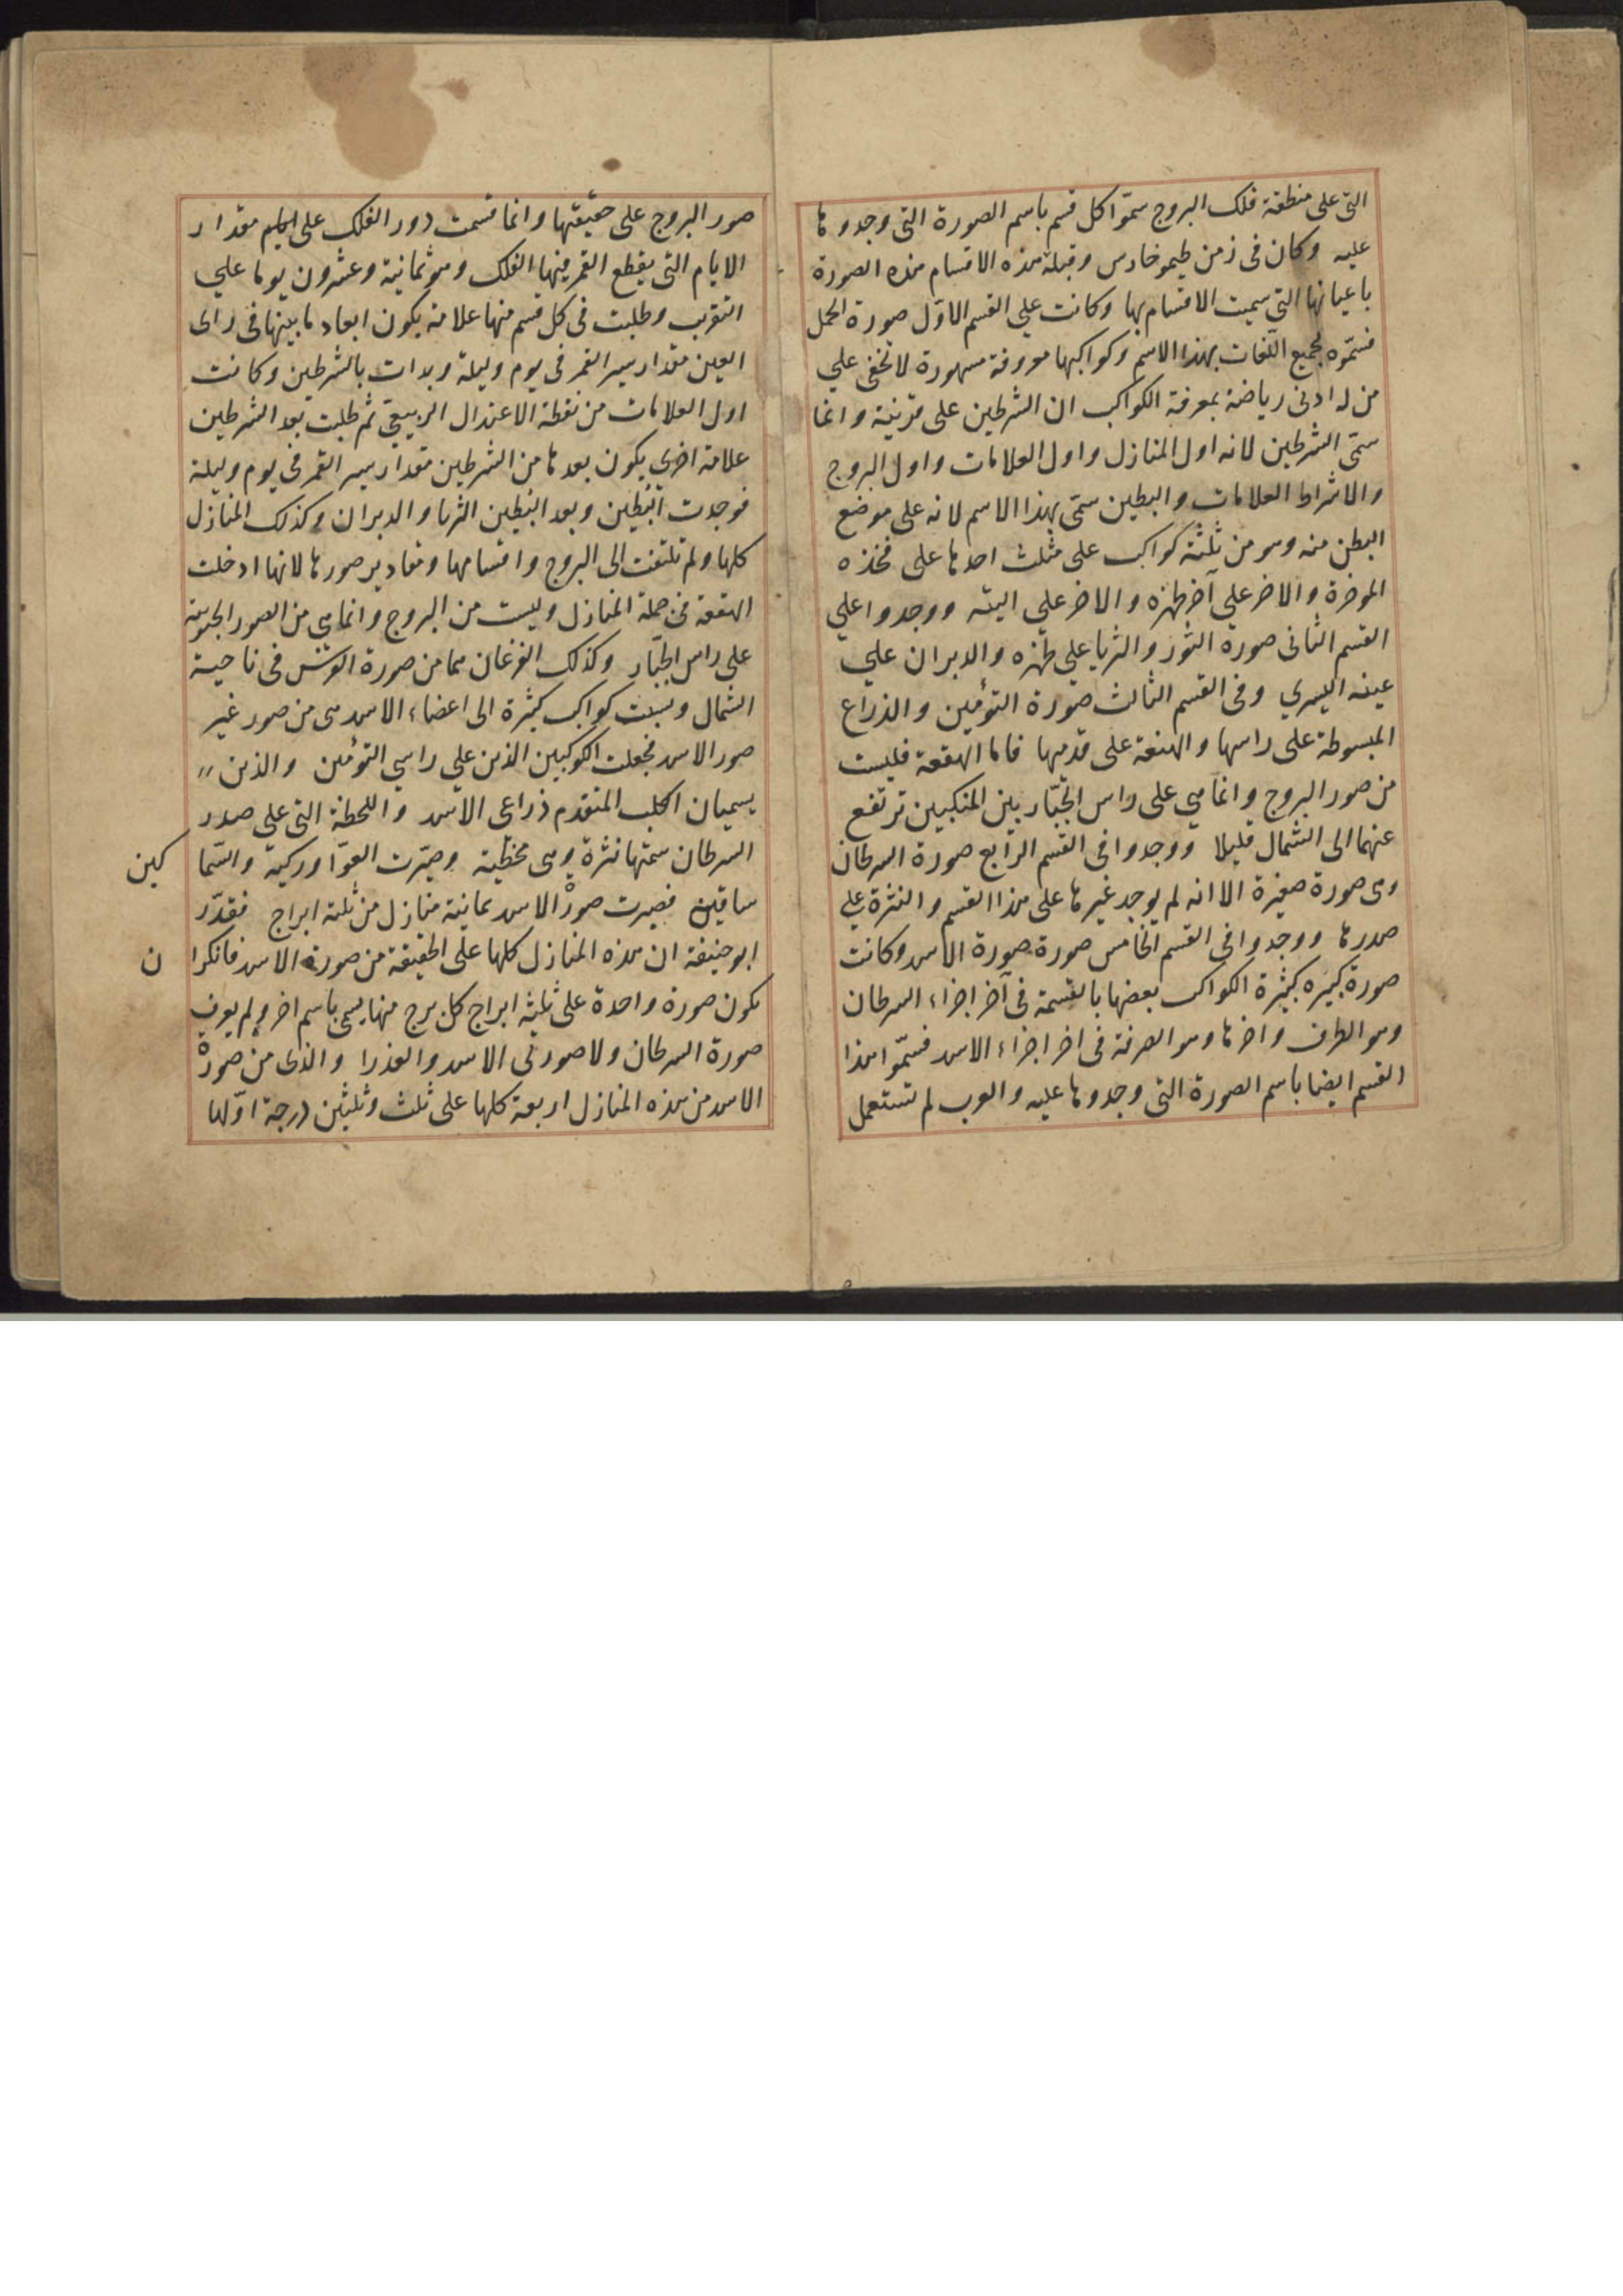 التى على منطقة فلك البروج سمّوا كل قسم باسم الصورة التى وجدوها
عليه وكان فى زمن طيموخارس وقبله هذه الاقسام هذه الصورة
باعيانها التى سميت الاقسام بها وكانت على القسم الاوّل صورة الحمل
فسمّوه بجميع اللّغات بهذا الاسم وكواكبها معروفة مشهورة لا تخفى على
من له ادنى رياضة بمعرفة الكواكب ان الشرطين على قرنيه وانما
سمّى الشرطين لانه اول المنازل واول العلامات واول البروج
والاشراط العلامات والبطين سمّى بهذا الاسم لانه على موضع
البطن منه وهو من ثلثة كواكب على مثلث احدها على فخذه
المؤخرة والاخر على آخر ظهره والاخر على اليته ووجدوا على
القسم الثانى صورة الثور والثريا على ظهره والدبران على
عينه اليسرى وفى القسم الثالث صورة التوءمين والذراع
المبسوطة على راسها والهنعة على قدميها فاما الهقعة فليست
من صور البروج وانما هى على راس الجبّار بين المنكبين ترتفع
عنهما الى الشمال قليلا ووجدوا فى القسم الرابع صورة السرطان
وهى صورة صغيرة الا انه لم يوجد غيرها على هذا القسم والنثرة على
صدرها ووجدوا فى القسم الخامس صورة صورة الاسد وكانت
صورة كبيره كثيرة الكواكب بعضها بالقسمة فى آخر اجزاء السرطان
وهو الطرف واخرها وهو الصرفة فى اخر اجزاء الاسد فسمّوا هذا
القسم ايضا باسم الصورة التى وجدوها عليه والعرب لم تستعمل
صور البروج على حقيقتها وانما قسمت دور الفلك على مقدار
الايام التى يقطع القمر فيها الفلك وهو ثمانية وعشرون يوما على
التقريب وطلبت فى كل قسم منها علامة يكون ابعاد ما بينها فى راى
العين مقدار سير القمر فى يوم وليلة وبدات بالشرطين وكانت
اول العلامات من نقطة الاعتدال الربيعى ثم طلبت بعد الشرطين
علامة اخرى يكون بعدها من الشرطين مقدار سير القمر فى يوم وليلة
فوجدت البطين وبعد البطين الثريا والدبران وكذلك المنازل
كلها ولم تلتفت الى البروج واقسامها ومقادير صورها لانها ادخلت
الهقعة فى جملة المنازل وليست من البروج وانما هى من الصور الجنوبية
على راس الجبّار وكذلك الفرغان هما من صورة الفرس فى ناحية
الشمال ونسبت كواكب كثيرة الى اعضاء الاسد هى من صور غير
صور الاسد فجعلت الكوكبين الذين على راسى التوءمين والذين
يسميان الكلب المتقدم ذراعى الاسد واللحظة التى على صدر
السرطان سمتها نثرة وهى مخطيه وصيّرت العوّا وركيه والسّما
كين
ساقين فصيرت صورة الاسد ثمانية منازل من ثلثة ابراج فقدّر
ابو حنيفة ان هذه المنازل كلها على الحقيقة من صورة الاسد فانكرا
ن
يكون صورة واحدة على ثلثة ابراج كل برج منها يسمى باسم اخر ولم يعرف
صورة السرطان ولا صورتى الاسد والعذرا والذى من صورة
الاسد من هذه المنازل اربعة كلها على ثلث وثلثين درجة اوّلها